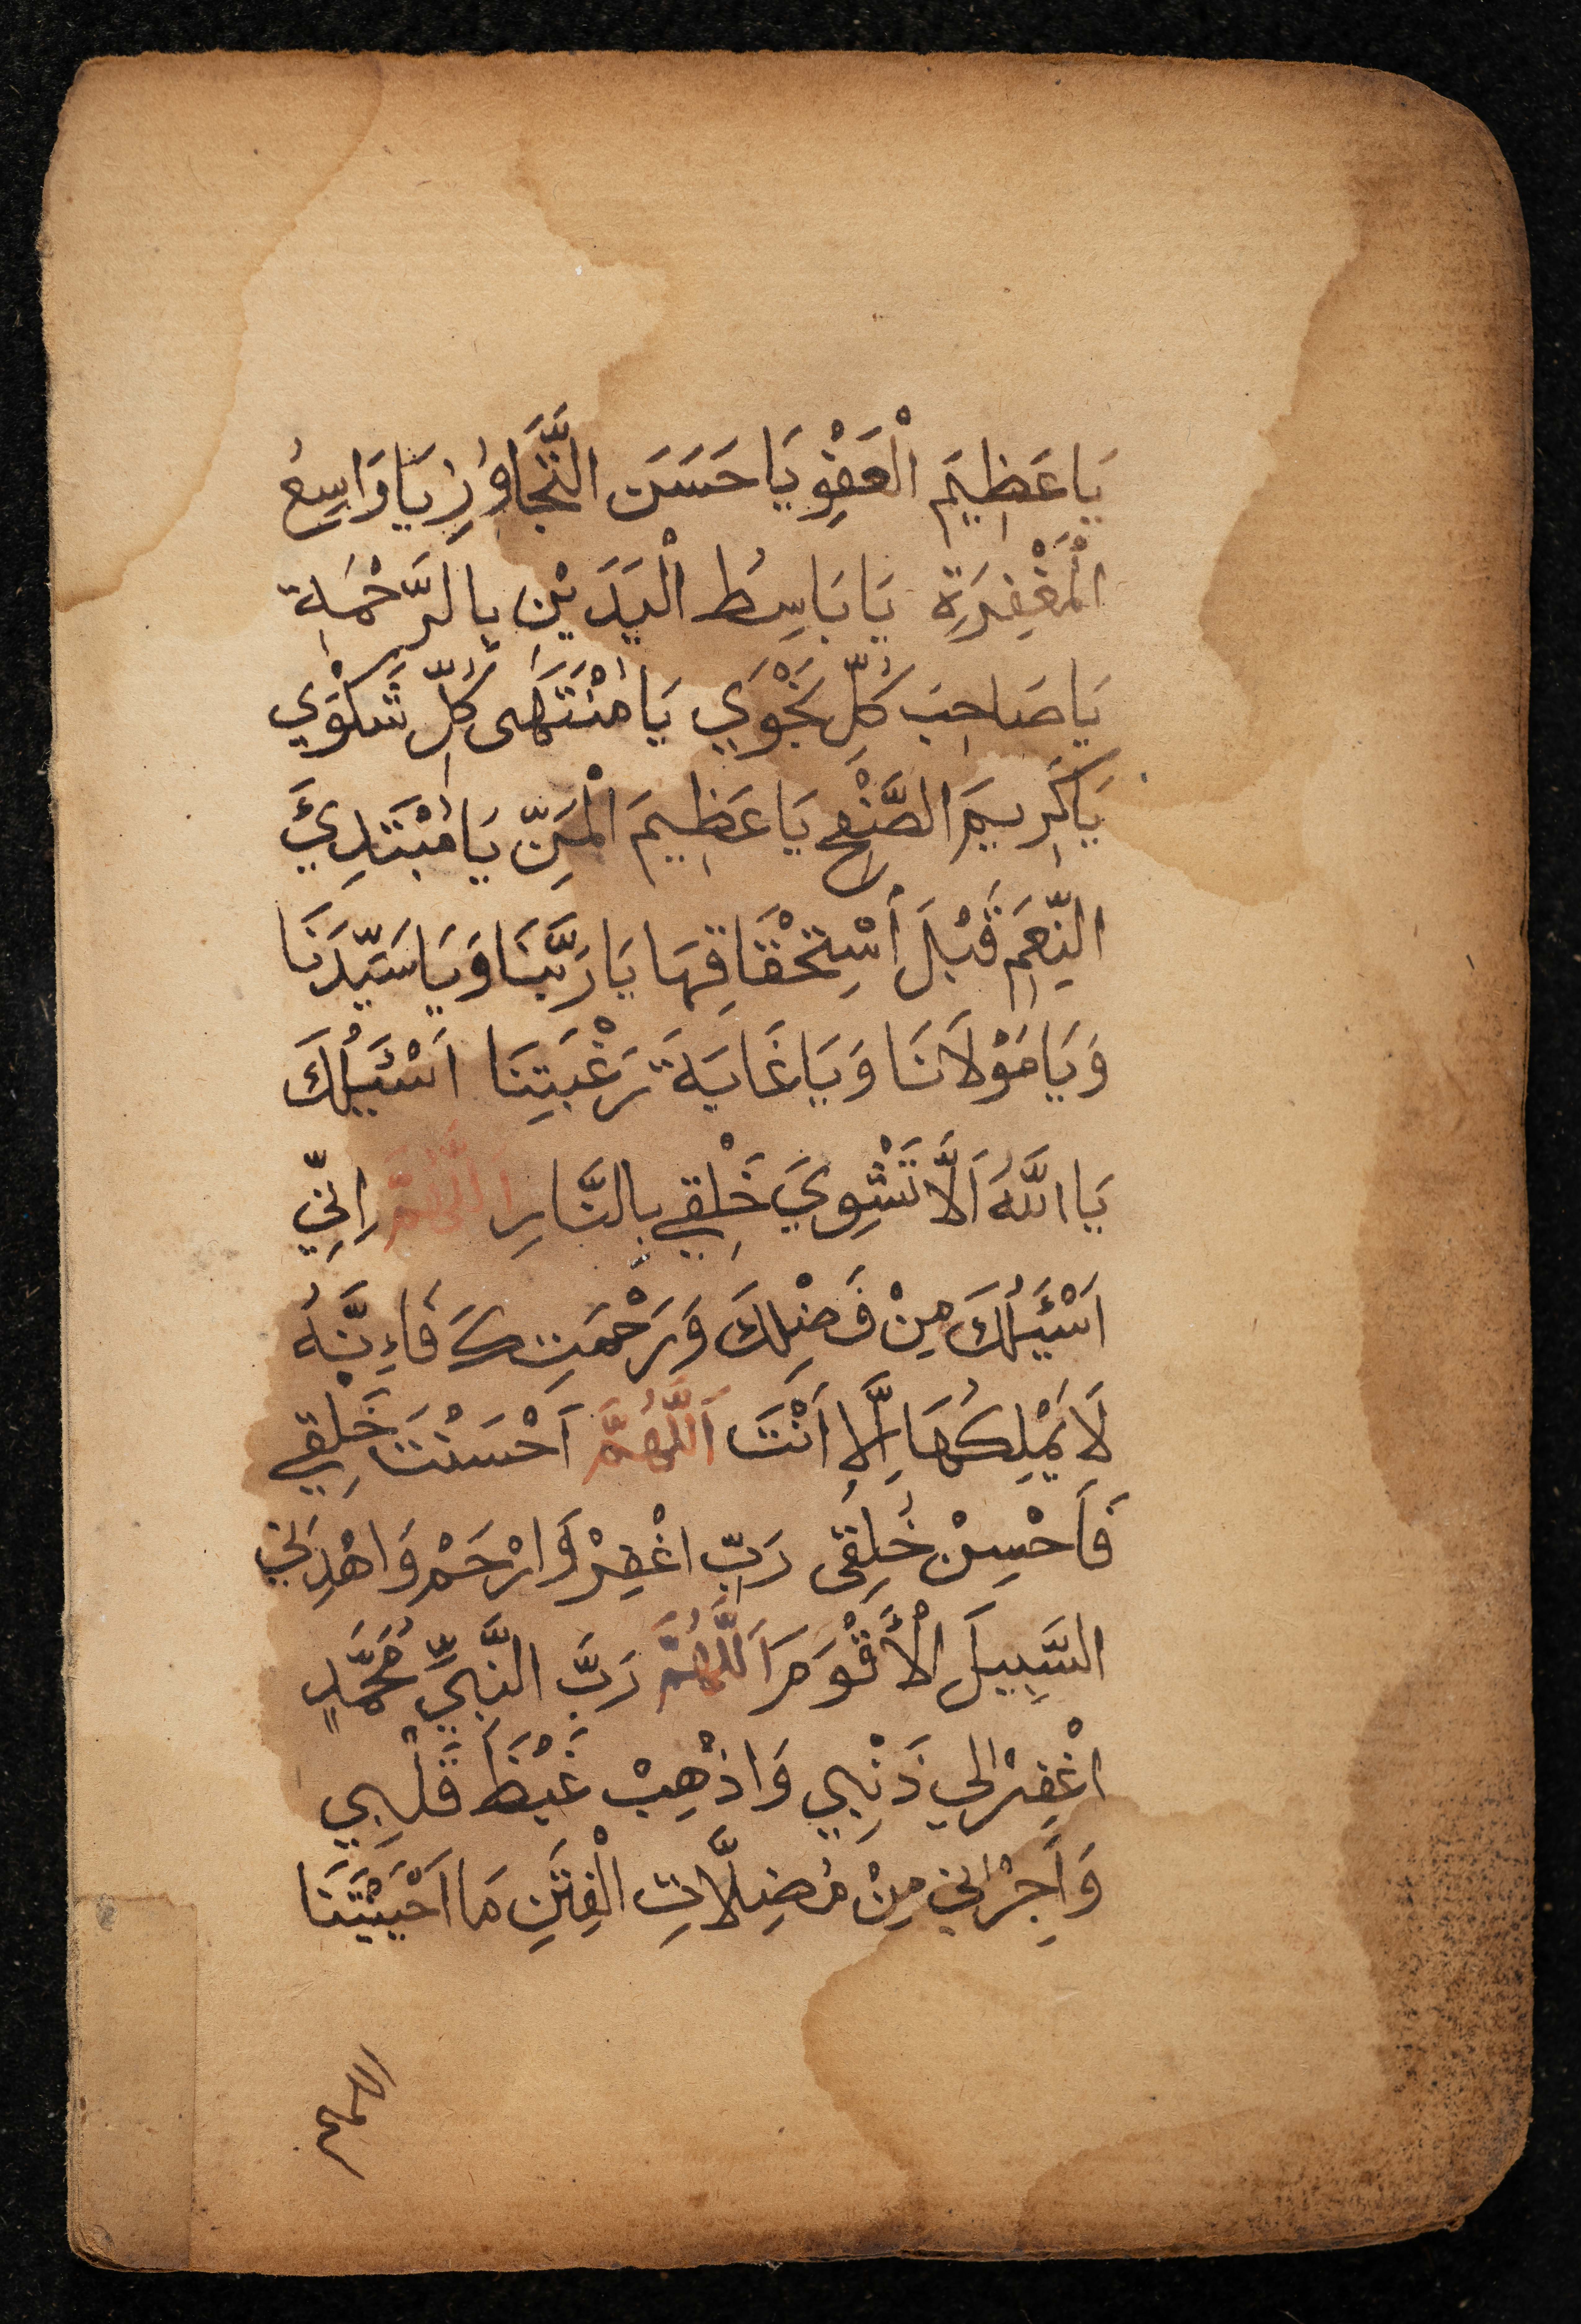 يَا عَظِيمَ الْعَفْوِ يَا حَسَنَ التَّجَاوُزِ يَا وَاسِعُ
الْمَغْفِرَةِ يَا بَاسِطُ الْيَدَيْنِ بِالرَّحْمَةِ
يَا صَاحِبَ كُلِّ نَجْوَي يَا مُنْتَهَى كُلِّ شَكْوَي
يَا كَرِيمَ الصَّفْحِ يَا عَظِيمَ الْمَنِّ يَا مُبْتَدِئَ
النِّعَمِ قَبْلَ أسْتِحْقَاقِهَا يَا رَبَّنَا وَيَا سَيِّدَنَا
وَيَا مَوْلَانَا وَيَا غَايَةَ رَغْبَتِنَا اَسْئَلُكَ
يَا اَللَّهُ اَلَّا تَشْوِيَ خَلْقِي بِالنَّارِ اَللَّهُمَّ اِنِّي
اَسْئَلُكَ مِنْ فَضْلِكَ وَرَحْمَتِكَ فَاِءنَّهُ
لَا يَمْلِكُهَا اِلَّا اَنْتَ اَللَّهُمَّ اَحْسَنْتَ خَلْقِي
فَاَحْسِنْ خُلُقِى رَبِّ اغْفِرْ وَارْحَمْ وَاهْدِنِي
السَّبِيلَ الْأَقْوَمَ اَللَّهُمَّ رَبَّ النَّبِيِّ مُحَمَّدٍ
اغْفِرْ لِي ذَنْبِي وَاذْهِبْ غَيْظَ قَلْبِي
وَاَجِرْنِي مِنْ مُضِلَّاتِ الْفِتَنِ مَا اَحْيَيْتَنَا
اللهم